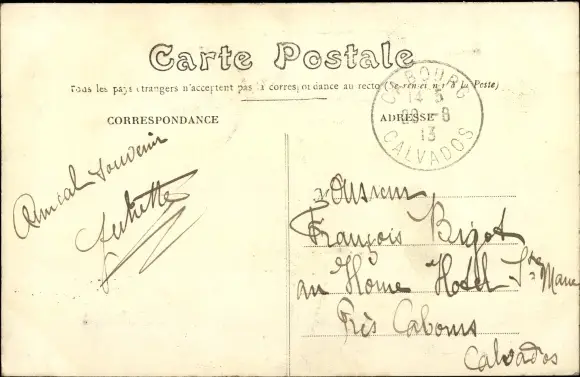 Carte Postale
Tous les pays étrangers n'acceptent pas la correspondance au recto (Se renseigner à la Poste)
CORRESPONDANCE
ADRESSE
CABOURG
14 5
29 -8
13
CALVADOS
Amical Souvenir
Juliette
Monsieur
François Bigot
au Home Hotel Ste Marie
Près Cabourg
Calvados